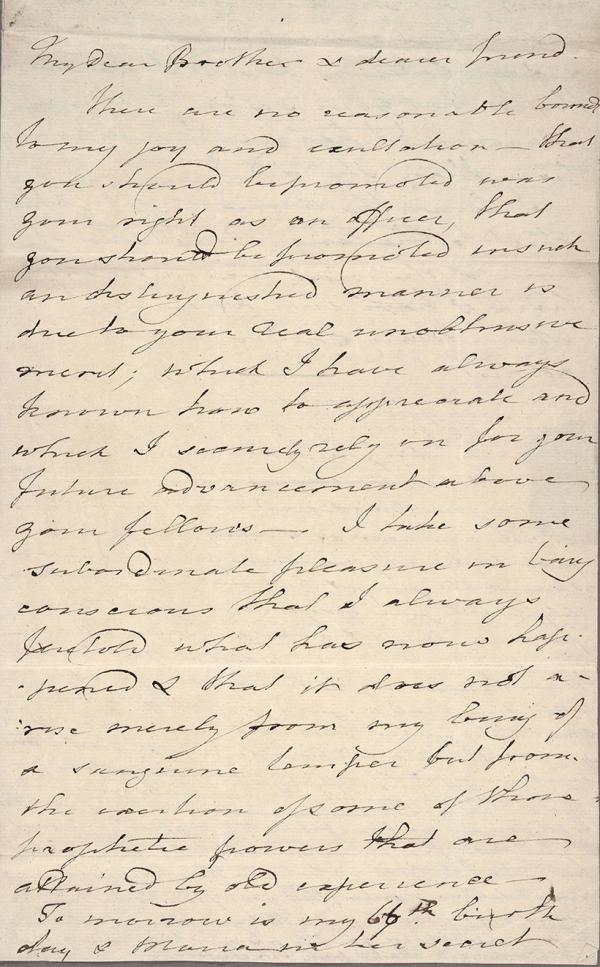 My Dear Brother & dearer friend.
There are no reasonable bounds
to my joy and exultation — that
you should be promoted was
your right as an officer, that
you should be promoted in such
an distinguished manner is
due to your real unobtrusive
merit; which I have always
known how to appreciate and
which I securely rely on for your
future advancement above
your fellows —. I take some
subordinate pleasure in being
conscious that I always
foretold what has now hap-
pened & that it does not a-
rise merely from my being of
a sanguine temper but from
the exertion of some of those
prophetic powers that are
attained by old experience
To morrow is my 66th birth
day & Maria in her secret